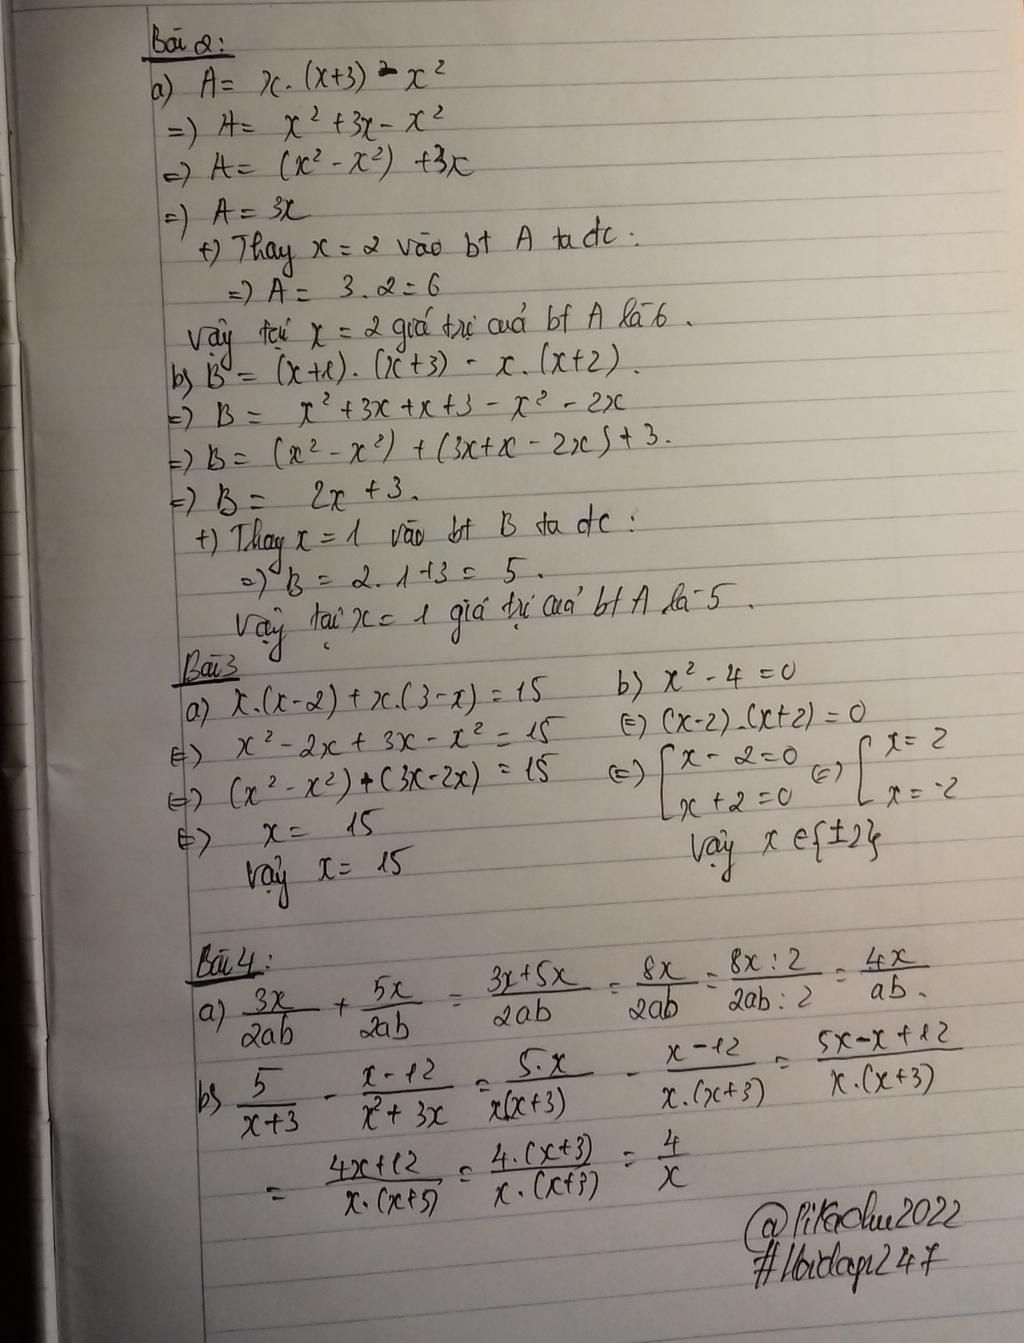 Bài 2:
a) A = x.(x+3) - x²
=) A = x² + 3x - x²
=) A = (x² - x²) + 3x
=) A = 3x
+) Thay x = 2 vào bt A ta đc :
=) A = 3.2 = 6
Vậy tại x = 2 giá trị của bt A là 6.
b) B = (x+1).(x+3) - x.(x+2).
=) B = x² + 3x + x + 3 - x² - 2x
=) B = (x² - x²) + (3x + x - 2x) + 3.
=) B = 2x + 3.
+) Thay x = 1 vào bt B ta đc :
=) B = 2.1 + 3 = 5.
Vậy tại x = 1 giá trị của bt A là 5.
Bài 3
a) x.(x-2) + x.(3-x) = 15
(=) x² - 2x + 3x - x² = 15
(=) (x² - x²) + (3x - 2x) = 15
(=) x = 15
Vậy x = 15
b) x² - 4 = 0
(=) (x-2).(x+2) = 0
(=) [x - 2 = 0 (=) [x = 2
x + 2 = 0 x = -2
Vậy x ∈ {±2}
Bài 4:
a) 3x/2ab + 5x/2ab = (3x+5x)/2ab = 8x/2ab = (8x : 2)/(2ab : 2) = 4x/ab.
b) 5/(x+3) - (x-12)/(x²+3x) = 5.x/x(x+3) - (x-12)/x.(x+3) = (5x-x+12)/x.(x+3)
= (4x+12)/x.(x+3) = 4.(x+3)/x.(x+3) = 4/x
@Pikachu2022
#Hoidap247